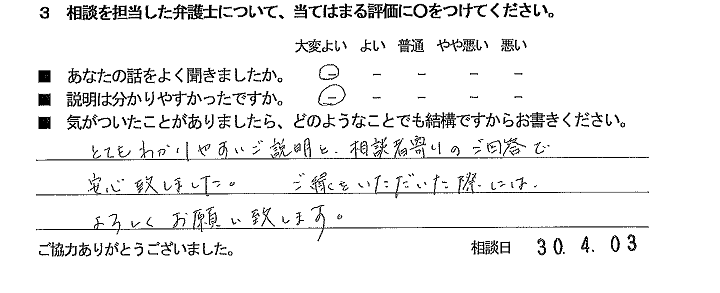 3 相談を担当した弁護士について、当てはまる評価に〇をつけてください。
大変よい よい 普通 やや悪い 悪い
■ あなたの話をよく聞きましたか。 － － － － －
■ 説明は分かりやすかったですか。 － － － － －
■ 気がついたことがありましたら、どのようなことでも結構ですからお書きください。
とてもわかりやすいご説明と、相談者寄りのご回答で
安心致しました。 ご縁をいただいた際には、
よろしくお願い致します。
ご協力ありがとうございました。 相談日 30.4.03